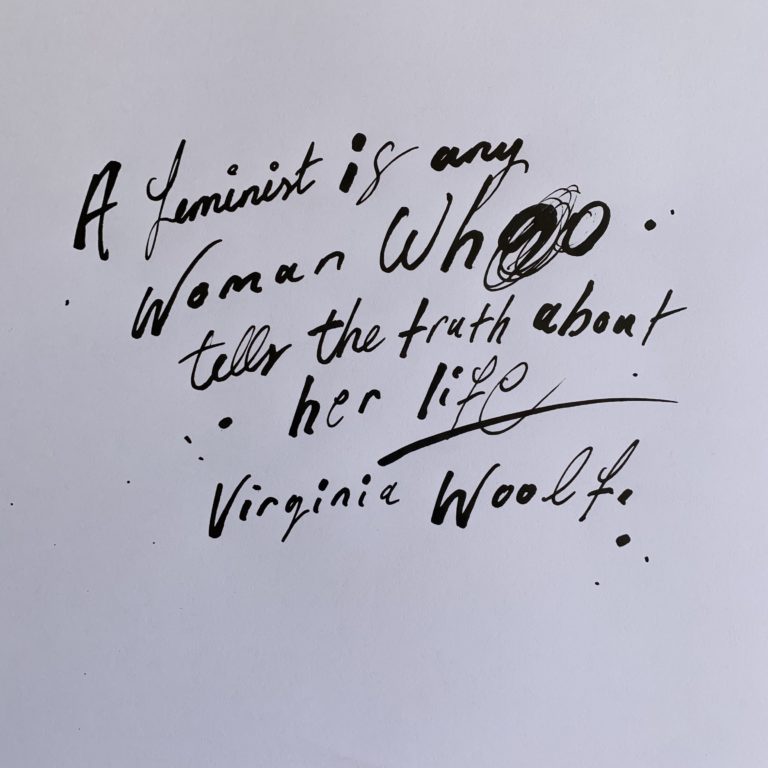 A feminist is any
Woman Who
tells the truth about
her life
Virginia Woolf.